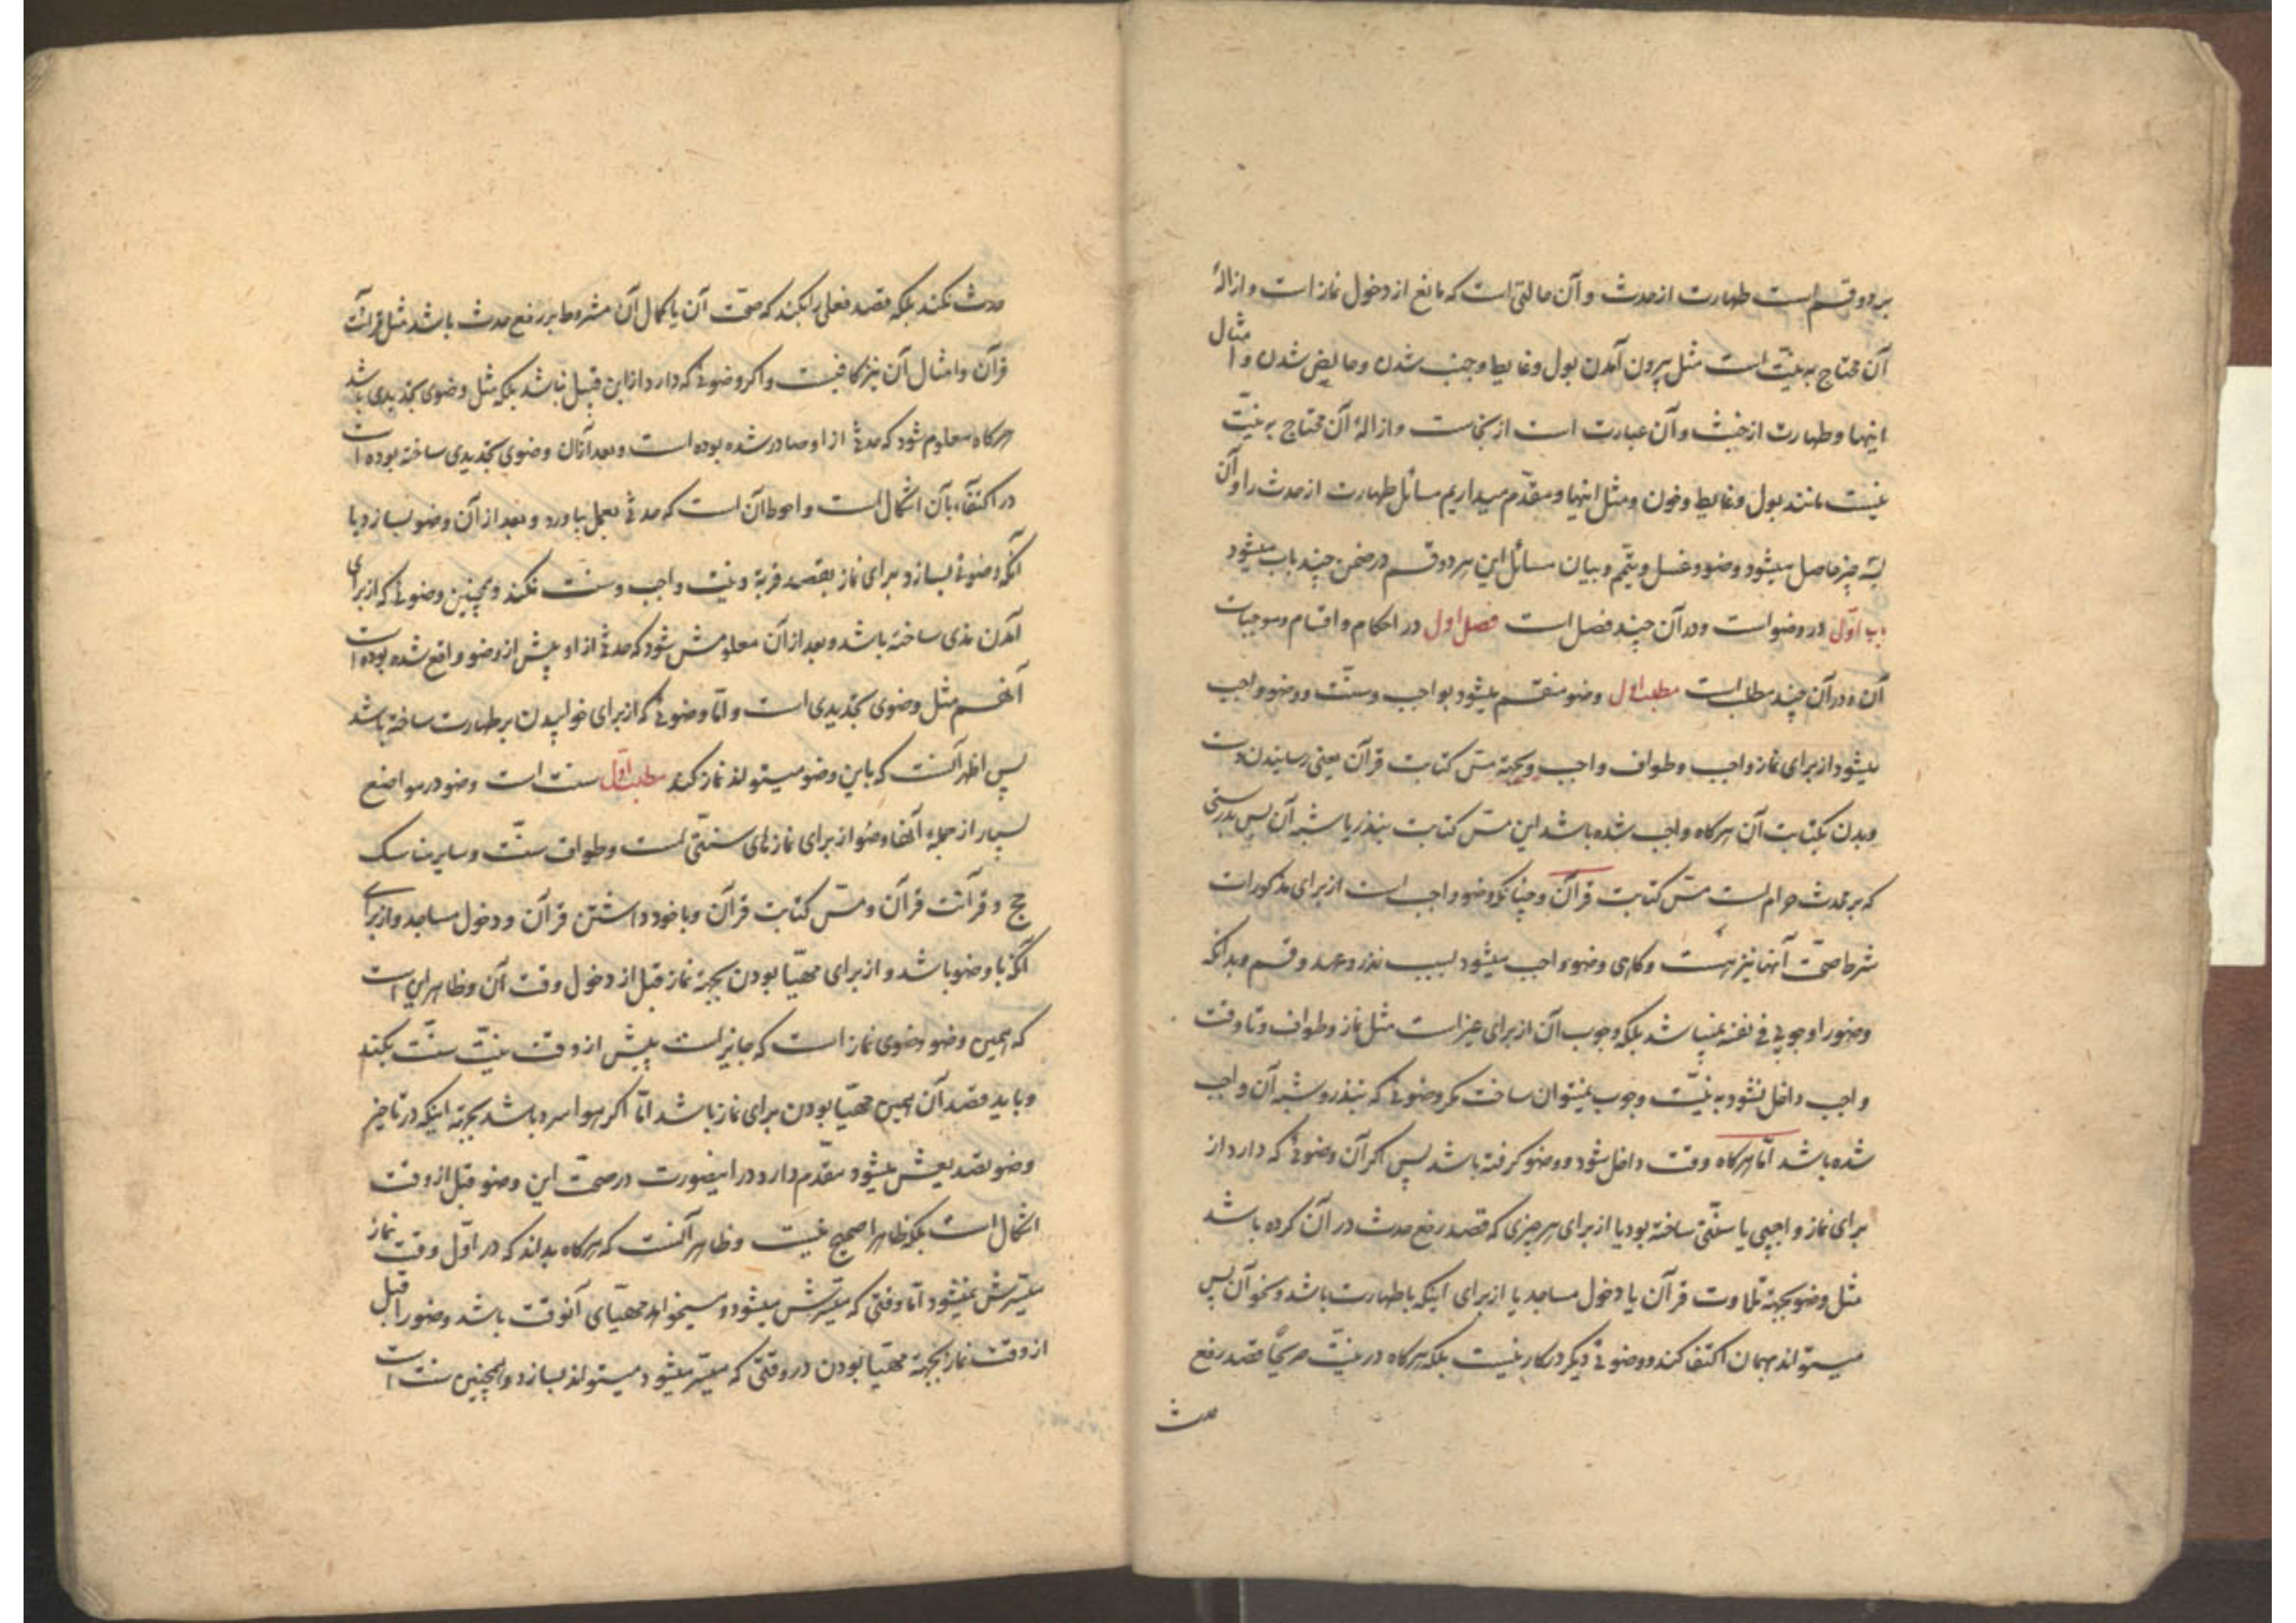 بر دو قسم است طهارت از حدث و آن حالتی است که مانع از دخول نماز است و ازالهٔ
آن محتاج به نیّت است مثل بیرون آمدن بول و غایط و جنب شدن و حایض شدن و امثال
اینها و طهارت از خبث و آن عبارت است از نجاست و ازالهٔ آن محتاج به نیّت
نیست مانند بول و غایط و خون و مثل اینها و مقدّم میداریم مسائل طهارت از حدث را و آن
بسه چیز حاصل میشود وضو و غسل و تیمّم و بیان مسائل این هر دو قسم در ضمن چند باب میشود
باب اوّل در وضو است و در آن چند فصل است فصل اول در احکام و اقسام و موجبات
آن و در آن چند مطلب است مطلب اول وضو منقسم میشود بواجب و سنّت و وضو واجب
میشود از برای نماز واجب و طواف واجب و بجهة مسّ کتابت قرآن یعنی رسانیدن دست
و بدن بکتابت آن هرکاه واجب شده باشد این مسّ کتابت بنذر یا شبه آن پس بدرستی
که بر محدث حرام است مسّ کتابت قرآن و چنانکه وضو واجب است از برای مذکورات
شرط صحّت آنها نیز هست و کاهی وضو واجب میشود بسبب نذر و عهد و قسم و بدانکه
وضو را وجوبی فی نفسه نمیباشد بلکه وجوب آن از برای غیر است مثل نماز و طواف و تا وقت
واجب داخل نشود به نیّت وجوب نمیتوان ساخت مکر وضوئی که بنذر و شبه آن واجب
شده باشد امّا هرکاه وقت داخل شود و وضو کرفته باشد پس اکر آن وضوئی که دارد از
برای نماز واجبی یا سنّتی ساخته بود یا از برای هر چیزی که قصد رفع حدث در آن کرده باشد
مثل وضو بجهة تلاوت قرآن یا دخول مساجد یا از برای اینکه با طهارت باشد و نحو آن پس
میتواند بهمان اکتفا کند و وضوئی دیگر درکار نیست بلکه هرکاه در نیّت صریحًا قصد رفع
حدث
حدث نکند بلکه قصد فعلی را بکند که صحّت آن یا کمال آن مشروط بر رفع حدث باشد مثل قرائت
قرآن و امثال آن نیز کافیست و اکر وضوئی که دارد از این قبیل نباشد بلکه مثل وضوی تجدیدی باشد
هرکاه معلوم شود که حدثی از او صادر شده بوده است و بعد از آن وضوی تجدیدی ساخته بوده است
در اکتفاء بآن اشکال است و احوط آن است که حدثی بعمل بیاورد و بعد از آن وضو بسازد یا
آنکه وضوئی بسازد برای نماز بقصد قربة و نیّت واجب و سنّت نکند و همچنین وضوئی که از برای
آمدن مذی ساخته باشد و بعد از آن معلومش شود که حدثی از او پیش از وضو واقع شده بوده است
آنهم مثل وضوی تجدیدی است و امّا وضوئی که از برای خوابیدن بر طهارت ساخته باشد
پس اظهر آنست که باین وضو میتواند نماز کند مطلب اوّل سنت است وضو در مواضع
بسیار از جمله آنها وضو از برای نمازهای سنّتی است و طواف سنّت و سایر مناسک
حج و قرآئت قرآن و مسّ کتابت قرآن و با خود داشتن قرآن و دخول مساجد و از برای
آنکه با وضو باشد و از برای مهیّا بودن بجهة نماز قبل از دخول وقت آن و ظاهر این است
که همین وضو وضوی نماز است که جایز است پیش از وقت نیّت سنّت بکند
و باید قصد آن همین مهیّا بودن برای نماز باشد امّا اکر هوا سرد باشد بجهة اینکه در تاخیر
وضو تصدیعش میشود مقدّم دارد در اینصورت در صحّت این وضو قبل از وقت
اشکال است بلکه ظاهرا صحیح نیست و ظاهر آنست که هرکاه بداند که در اوّل وقت نماز
میسّرش نمیشود امّا وقتی که میسّرش میشود و میخواهد مهیّای آنوقت باشد وضو را قبل
از وقت نماز بجهة مهیّا بودن در وقتی که میسّر میشود میتواند بسازد و همچنین سنّت است